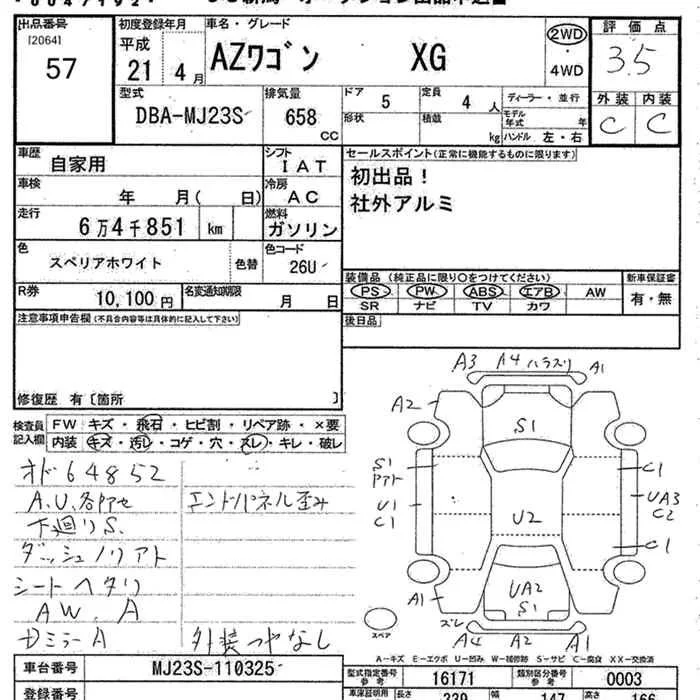 出品番号
[2064]
57
初度登録年月
平成
21 4 月
車名・グレード
AZワゴン XG
2WD
・
4WD
評価点
3.5
型式
DBA-MJ23S
排気量
658
CC
ドア 5
定員 4 人
ディーラー・並行
形状
積載 kg
モデル年式 年
ハンドル 左・右
外装 内装
C C
車歴
自家用
シフト
IAT
セールスポイント(正常に機能するものに限ります)
初出品!
社外アルミ
車検
年 月( 日)
冷房
AC
走行
6万4千851 km
燃料
ガソリン
色
スペリアホワイト
色替
色コード
26U
装備品 (純正品に限り○をつけてください)
PS PW ABS エアB AW
SR ナビ TV カワ
新車保証書
有・無
R券
10,100円
名変通知期限
月 日
後日品
注意事項申告欄(不具合内容等は具体的に記入して下さい)
修復歴 有〔箇所 〕
検査員
記入欄
FW キズ・飛石・ヒビ割・リペア跡・×要
内装 キズ・汚レ・コゲ・穴・スレ・キレ・破レ
オド64852
A.U.各所セ
下廻りS.
ダッシュノリアト
シートヘタリ
AW. A
Dミラー A
エンドパネル歪み
外装つやなし
A3 A4 ハラズリ A1
A2
S1
S1
アト
U1
C1
C1
UA3
C2
U2
C1
A1
UA2
S1
スペア
ズレ
A4 A2 A1
A-キズ E-エクボ U-凹み W-補修跡 S-サビ C-腐食 XX-交換済
車台番号
MJ23S-110325
型式指定番号
参考
16171
類別区分番号
参考
0003
登録番号
車庫証明用
長さ 339
幅 147
高さ 166